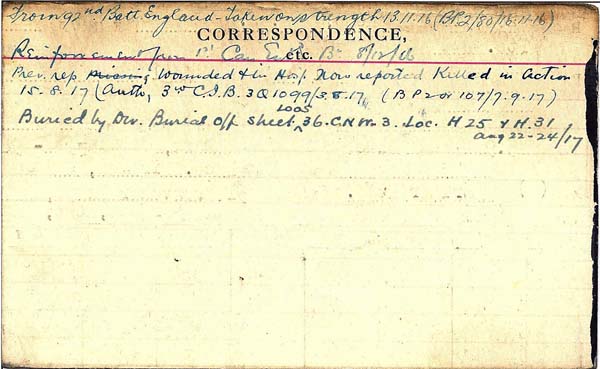 From 92nd Batt. England - Taken on strength 13.11.16 (B.P.2/80/16-11-16)
CORRESPONDENCE, etc.
Reinforcement from 1st Can Bn 8/12/16
Prev. rep. missing Wounded & in Hosp Now reported Killed in Action
15.8.17 (Auth, 3rd C.I.B. 3Q1099/3.8.17 (B P 2 107/7.9.17)
LOOS
Buried by Div. Burial Off Sheet 36.C.N.W. 3. Loc. H 25 & H.31
Aug 22-24/17